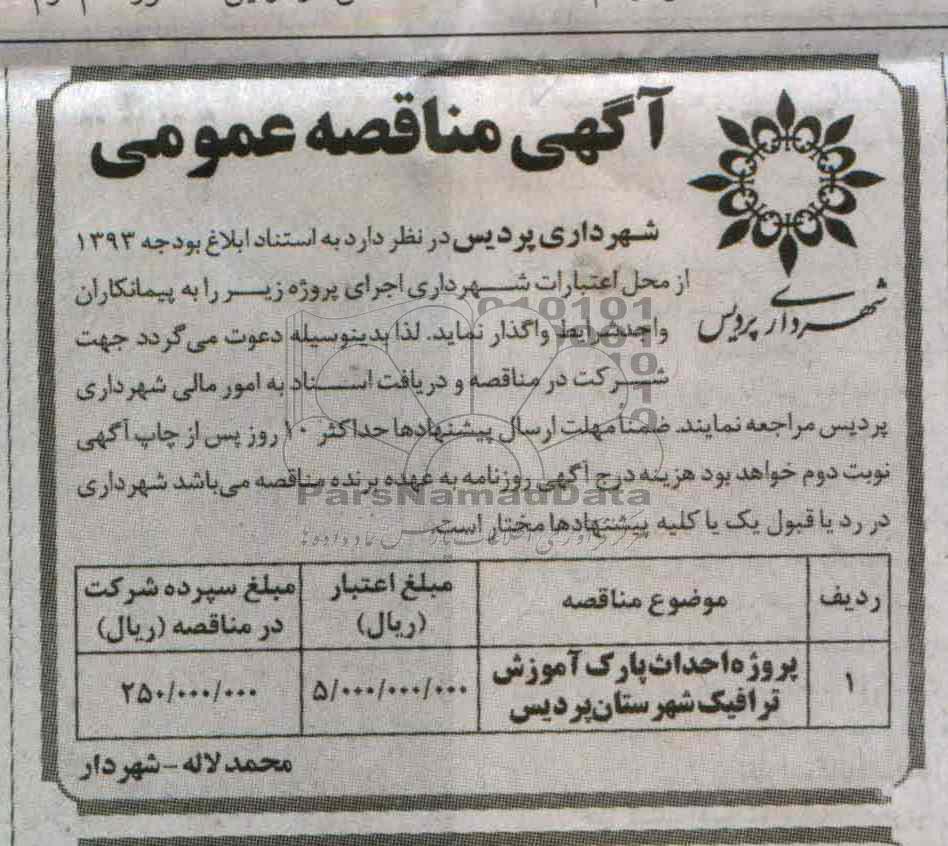 آگهی مناقصه عمومی
شهرداری پردیس
شهرداری پردیس در نظر دارد به استناد ابلاغ بودجه ۱۳۹۳
از محل اعتبارات شهرداری اجرای پروژه زیر را به پیمانکاران
واجدشرایط واگذار نماید. لذا بدینوسیله دعوت می‌گردد جهت
شرکت در مناقصه و دریافت اسناد به امور مالی شهرداری
پردیس مراجعه نمایند. ضمناً مهلت ارسال پیشنهادها حداکثر ۱۰ روز پس از چاپ آگهی
نوبت دوم خواهد بود هزینه درج آگهی روزنامه به عهده برنده مناقصه می‌باشد شهرداری
در رد یا قبول یک یا کلیه پیشنهادها مختار است.
ParsNamadData
ردیف موضوع مناقصه مبلغ اعتبار (ریال) مبلغ سپرده شرکت در مناقصه (ریال)
۱ پروژه احداث پارک آموزش ترافیک شهرستان پردیس ۵/۰۰۰/۰۰۰/۰۰۰ ۲۵۰/۰۰۰/۰۰۰
محمد لاله - شهردار